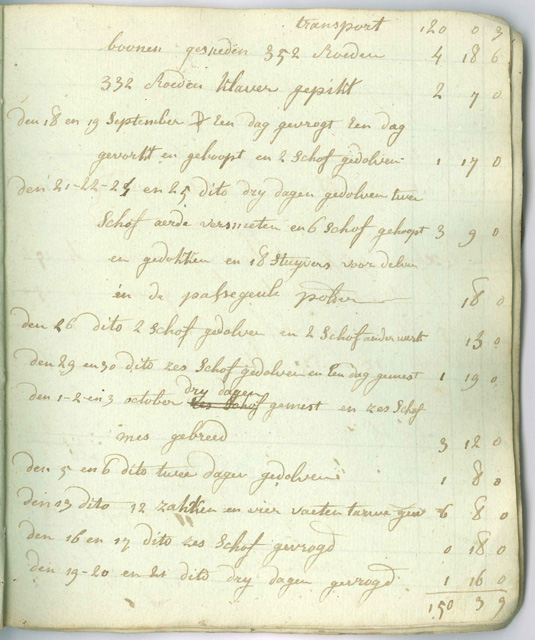 transport 120 0 3
boonen gesneden 352 Roeden 4 18 6
332 Roeden klaver gepikt 2 7 0
den 18 en 19 September Een dag gevrogt Een dag
gevorkt en gehoopt en 2 Schof gedolven 1 17 0
den 21-22-24 en 25 dito dry dagen gedolven twee
Schof aerde versmeten en 6 Schof gehoopt 3 9 0
en gedekken en 18 Stuyvers voor delven
in de 18 0
den 26 dito 2 Schof gedolven en 2 Schof ander werk 13 0
den 29 en 30 dito zes Schof gedolven en Een dag gemest 1 19 0
den 1-2 en 3 october dry dagen gemest en zes Schof
mes gebreed 3 12 0
den 5 en 6 dito twee dagen gedolven 1 8 0
den 13 dito 12 zakken en vier vaeten tarwe 6 8 0
den 16 en 17 dito zes Schof gevrogd 0 18 0
den 19-20 en 21 dito dry dagen gevrogd 1 16 0
150 3 9